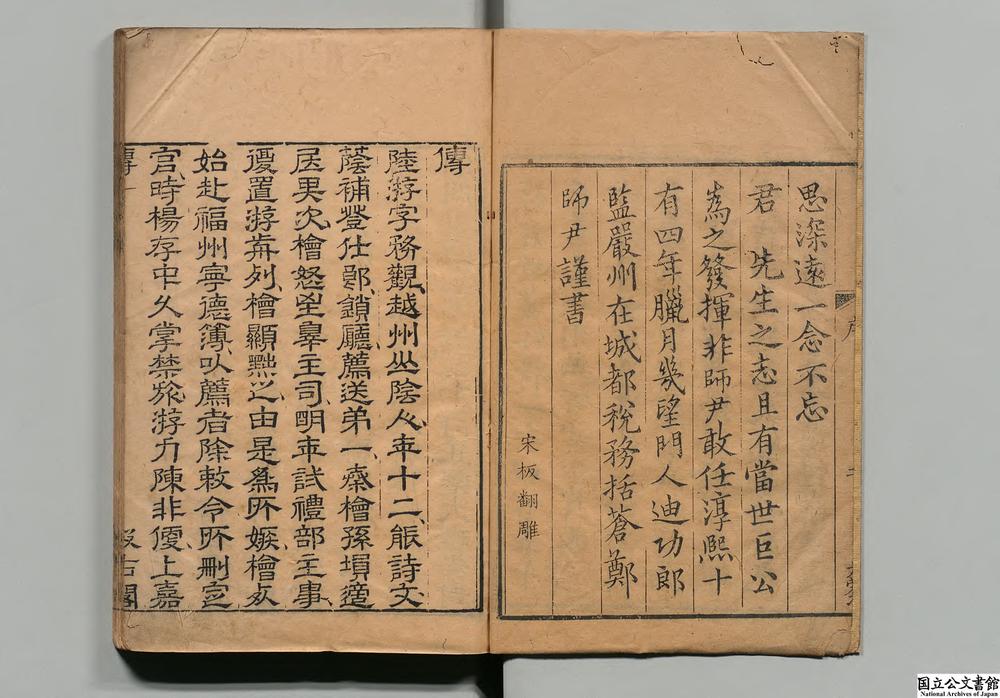 思深遠一念不忘
君　先生之志且有當世巨公
為之發揮非師尹敢任淳熙十
有四年臘月幾望門人迪功郎
監嚴州在城都稅務括蒼鄭
師尹謹書
宋板翻雕
傳
陸游字務觀越州山陰人年十二能詩文
蔭補登仕郎鎖廳薦送弟一秦檜孫塤適
居其次檜怒至罪主司明年試禮部主事
復置游前列檜顯黜之由是爲所嫉檜死
始赴福州寧德簿以薦者除敕令所刪定
官時楊存中久掌禁旅游力陳非便上嘉
傳
汲古閣
国立公文書館
National Archives of Japan